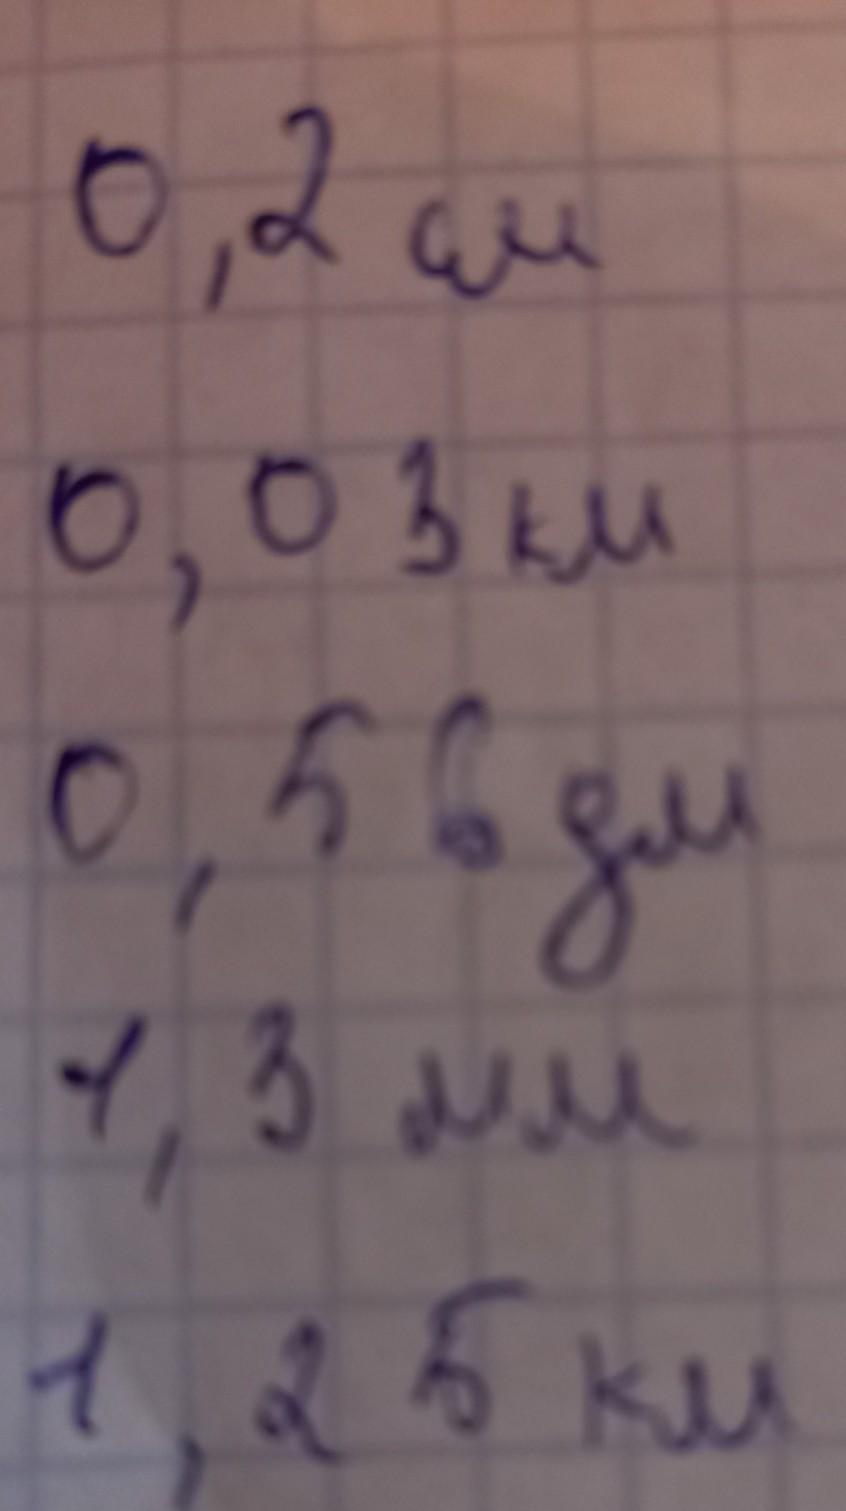 0,2 см
0,03 км
0,56 дм
1,3 мм
1,25 км